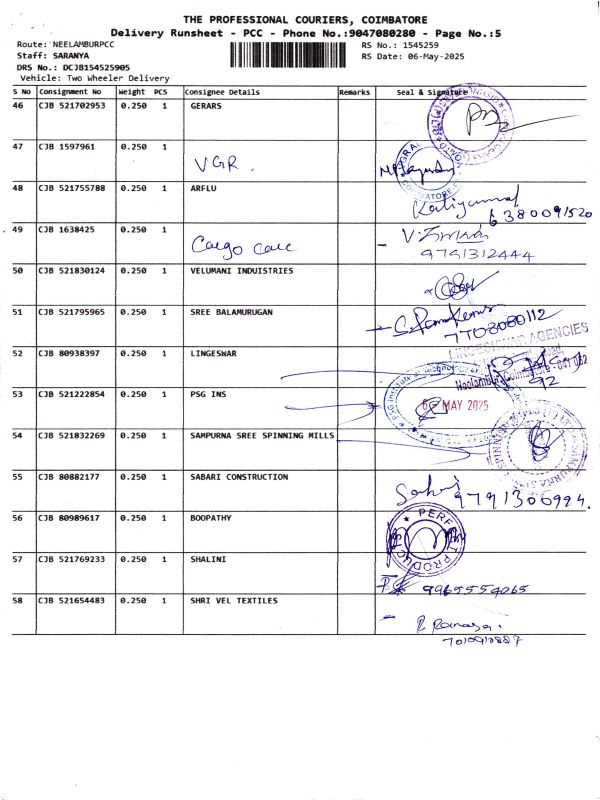 THE PROFESSIONAL COURIERS, COIMBATORE
Delivery Runsheet - PCC - Phone No.:9047080280 - Page No.:5
Route: NEELAMBURPCC
RS No.: 1545259
Staff: SARANYA
RS Date: 06-May-2025
DRS No.: DCJB154525905
Vehicle: Two Wheeler Delivery
S No Consignment No Weight PCS Consignee Details Remarks Seal & Signature
46 CJB 521702953 0.250 1 GERARS
47 CJB 1597961 0.250 1 VGR.
48 CJB 521755788 0.250 1 ARFLU
6380091520
49 CJB 1638425 0.250 1 Cargo care
9791312444
50 CJB 521830124 0.250 1 VELUMANI INDUISTRIES
51 CJB 521795965 0.250 1 SREE BALAMURUGAN
7708080112
52 CJB 80938397 0.250 1 LINGESWAR
AGENCIES
53 CJB 521222854 0.250 1 PSG INS
MAY 2025
54 CJB 521832269 0.250 1 SAMPURNA SREE SPINNING MILLS
55 CJB 80882177 0.250 1 SABARI CONSTRUCTION
9791306994.
56 CJB 80989617 0.250 1 BOOPATHY
PERFECT PRODUC
57 CJB 521769233 0.250 1 SHALINI
9965554065
58 CJB 521654483 0.250 1 SHRI VEL TEXTILES
7010910887